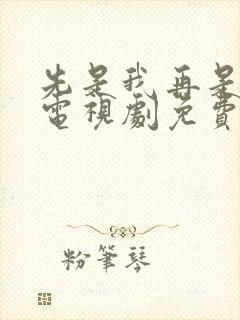 先是我再是
電視劇免費
粉筆琴